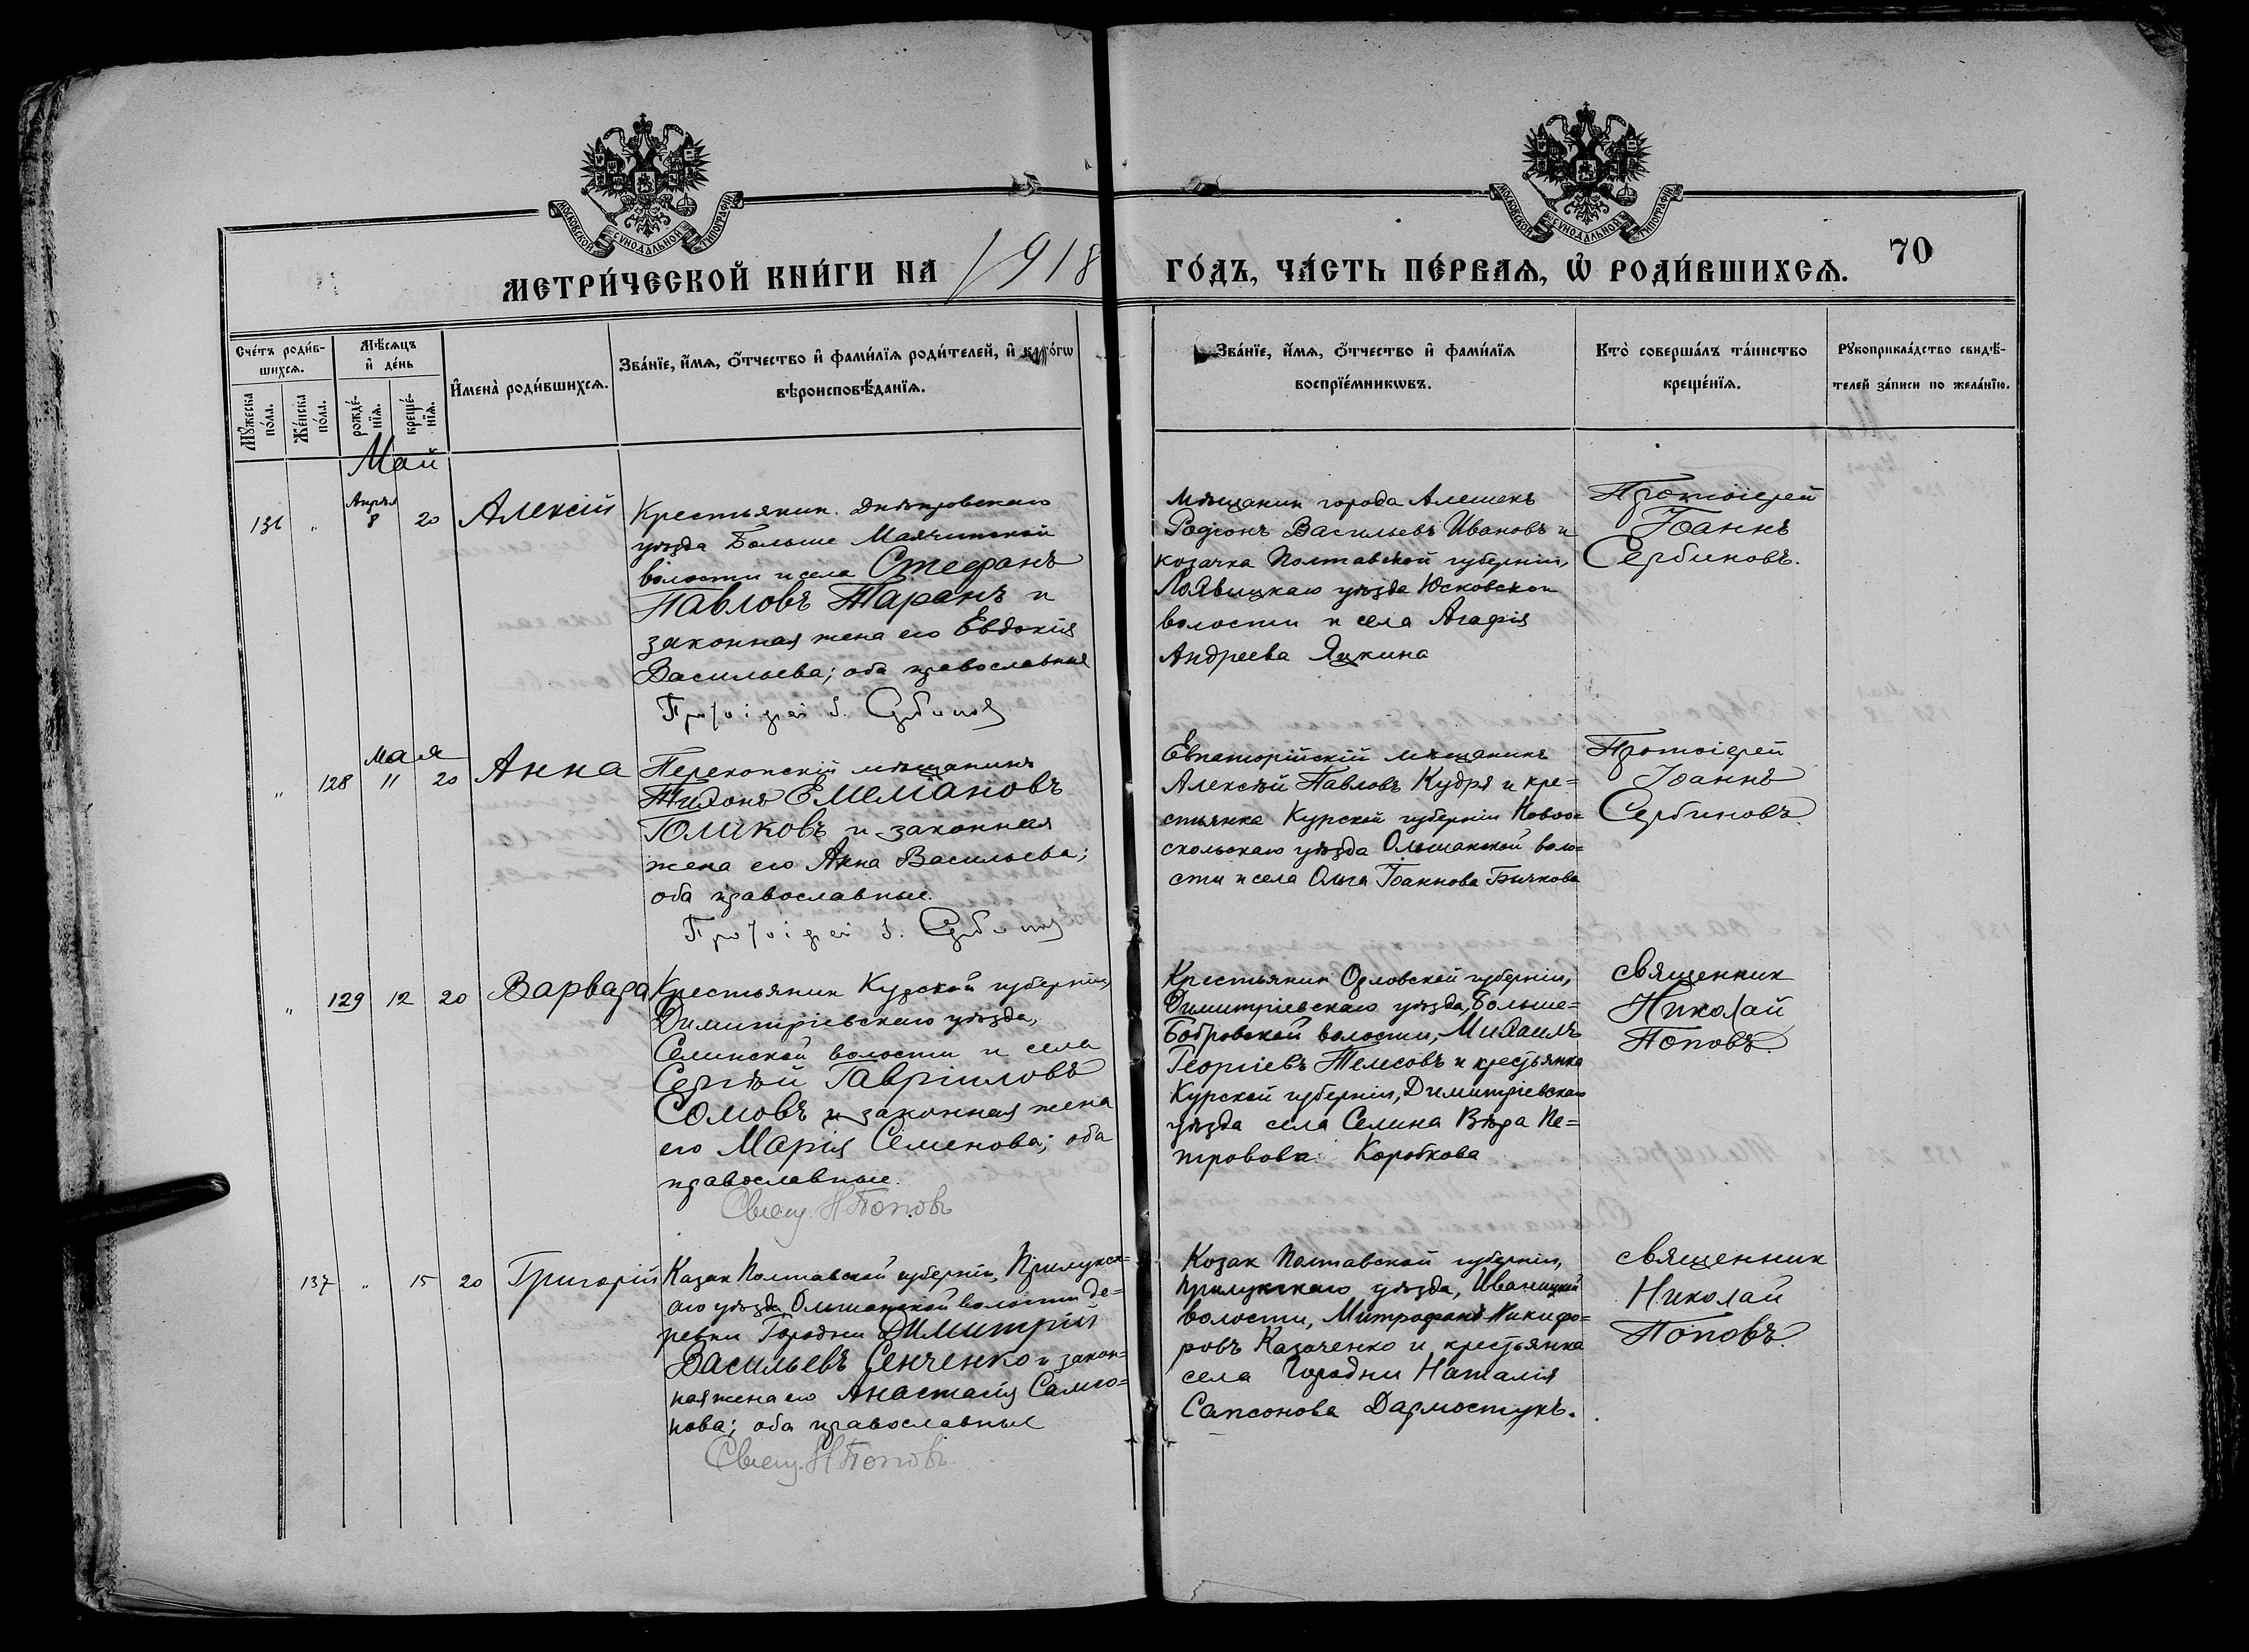 МОСКОВСКОЙ СѴНОДАЛЬНОЙ ТИПОГРАФІИ
МОСКОВСКОЙ СѴНОДАЛЬНОЙ ТИПОГРАФІИ
МЕТРИ́ЧЕСКОЙ КНИ́ГИ НА 1918 ГО́ДЪ, ЧА́СТЬ ПЕ́РВАѦ, Ѽ РОДИ́ВШИХСѦ.
70
Сче́тъ роди́в-
шихсѧ.
Му́жеска
по́ла.
Же́нска
по́ла.
Мѣ́сѧцъ
и҆ де́нь
рожде́-
нїѧ.
креще́-
нїѧ.
И҆мена̀ роди́вшихсѧ.
Зва́нїе, и҆́мѧ, ѻ҆́тчество и҆ фами́лїѧ роди́телей, и҆ како́гѡ
вѣроисповѣ́данїѧ.
Зва́нїе, и҆́мѧ, ѻ҆́тчество и҆ фами́лїѧ
воспрїе́мникѡвъ.
Кто̀ соверша́лъ та́инство
креще́нїѧ.
Рꙋкоприкла́дство свидѣ́-
телей за́писи по жела́нїю.
Май
136 " Апрѣл 8 20 Алексій
Крестьянин Днѣпровскаго
уѣзда Больше Маячинской
волости и села Стефанъ
Павловъ Таранъ и
законная жена его Евдокія
Васильева; оба православные
Протоіерей І. Сербинов
Мѣщанин города Алешекъ
Родіонъ Васильевъ Ивановъ и
козачка Полтавской губерніи,
Лохвицкаго уѣзда Юсковской
волости и села Агафія
Андреева Яцкина
Протоіерей
Іоаннъ
Сербиновъ.
" 128 мая 11 20 Анна
Перекопскій мѣщанинъ
Тихонъ Емеліановъ
Голиковъ и законная
жена его Анна Васильева;
оба православные.
Протоіерей І. Сербинов
Евпаторійскій мѣщанинъ
Алексѣй Павловъ Кудря и кре=
стьянка Курской губерніи Новоо=
скольскаго уѣзда Ольшанской воло=
сти и села Ольга Іоаннова Бычкова
Протоіерей
Іоаннъ
Сербиновъ.
" 129 12 20 Варвара
Крестьянин Курской губерніи,
Димитріевскаго уѣзда,
Селинской волости и села
Сергѣй Гавріиловъ
Сомовъ и законная жена
его Марія Семенова; оба
православные.
Свящ. Н Поповъ
Крестьянин Орловской губерніи,
Димитріевскаго уѣзда, Больше=
Бобровской волости, Михаилъ
Георгіевъ Телесовъ и крестьянка
Курской губерніи, Димитріевскаго
уѣзда села Селина Вѣра Пе=
тровова Коробкова
священник
Николай
Поповъ.
137 " 15 20 Григорій
Казак Полтавской губерніи, Прилукск=
аго уѣзда Ольшанской волости де=
ревни Городни Димитрій
Васильевъ Сенченко и закон=
ная жена его Анастасія Самсо=
нова; оба православные
Свящ. Н Поповъ.
Козак Полтавской губерніи,
Прилукскаго уѣзда, Иваницкой
волости, Митрофанъ Никифо=
ровъ Казаченко и крестьянка
села Городни Наталія
Сапсонова Дармостукъ.
священник
Николай
Поповъ.